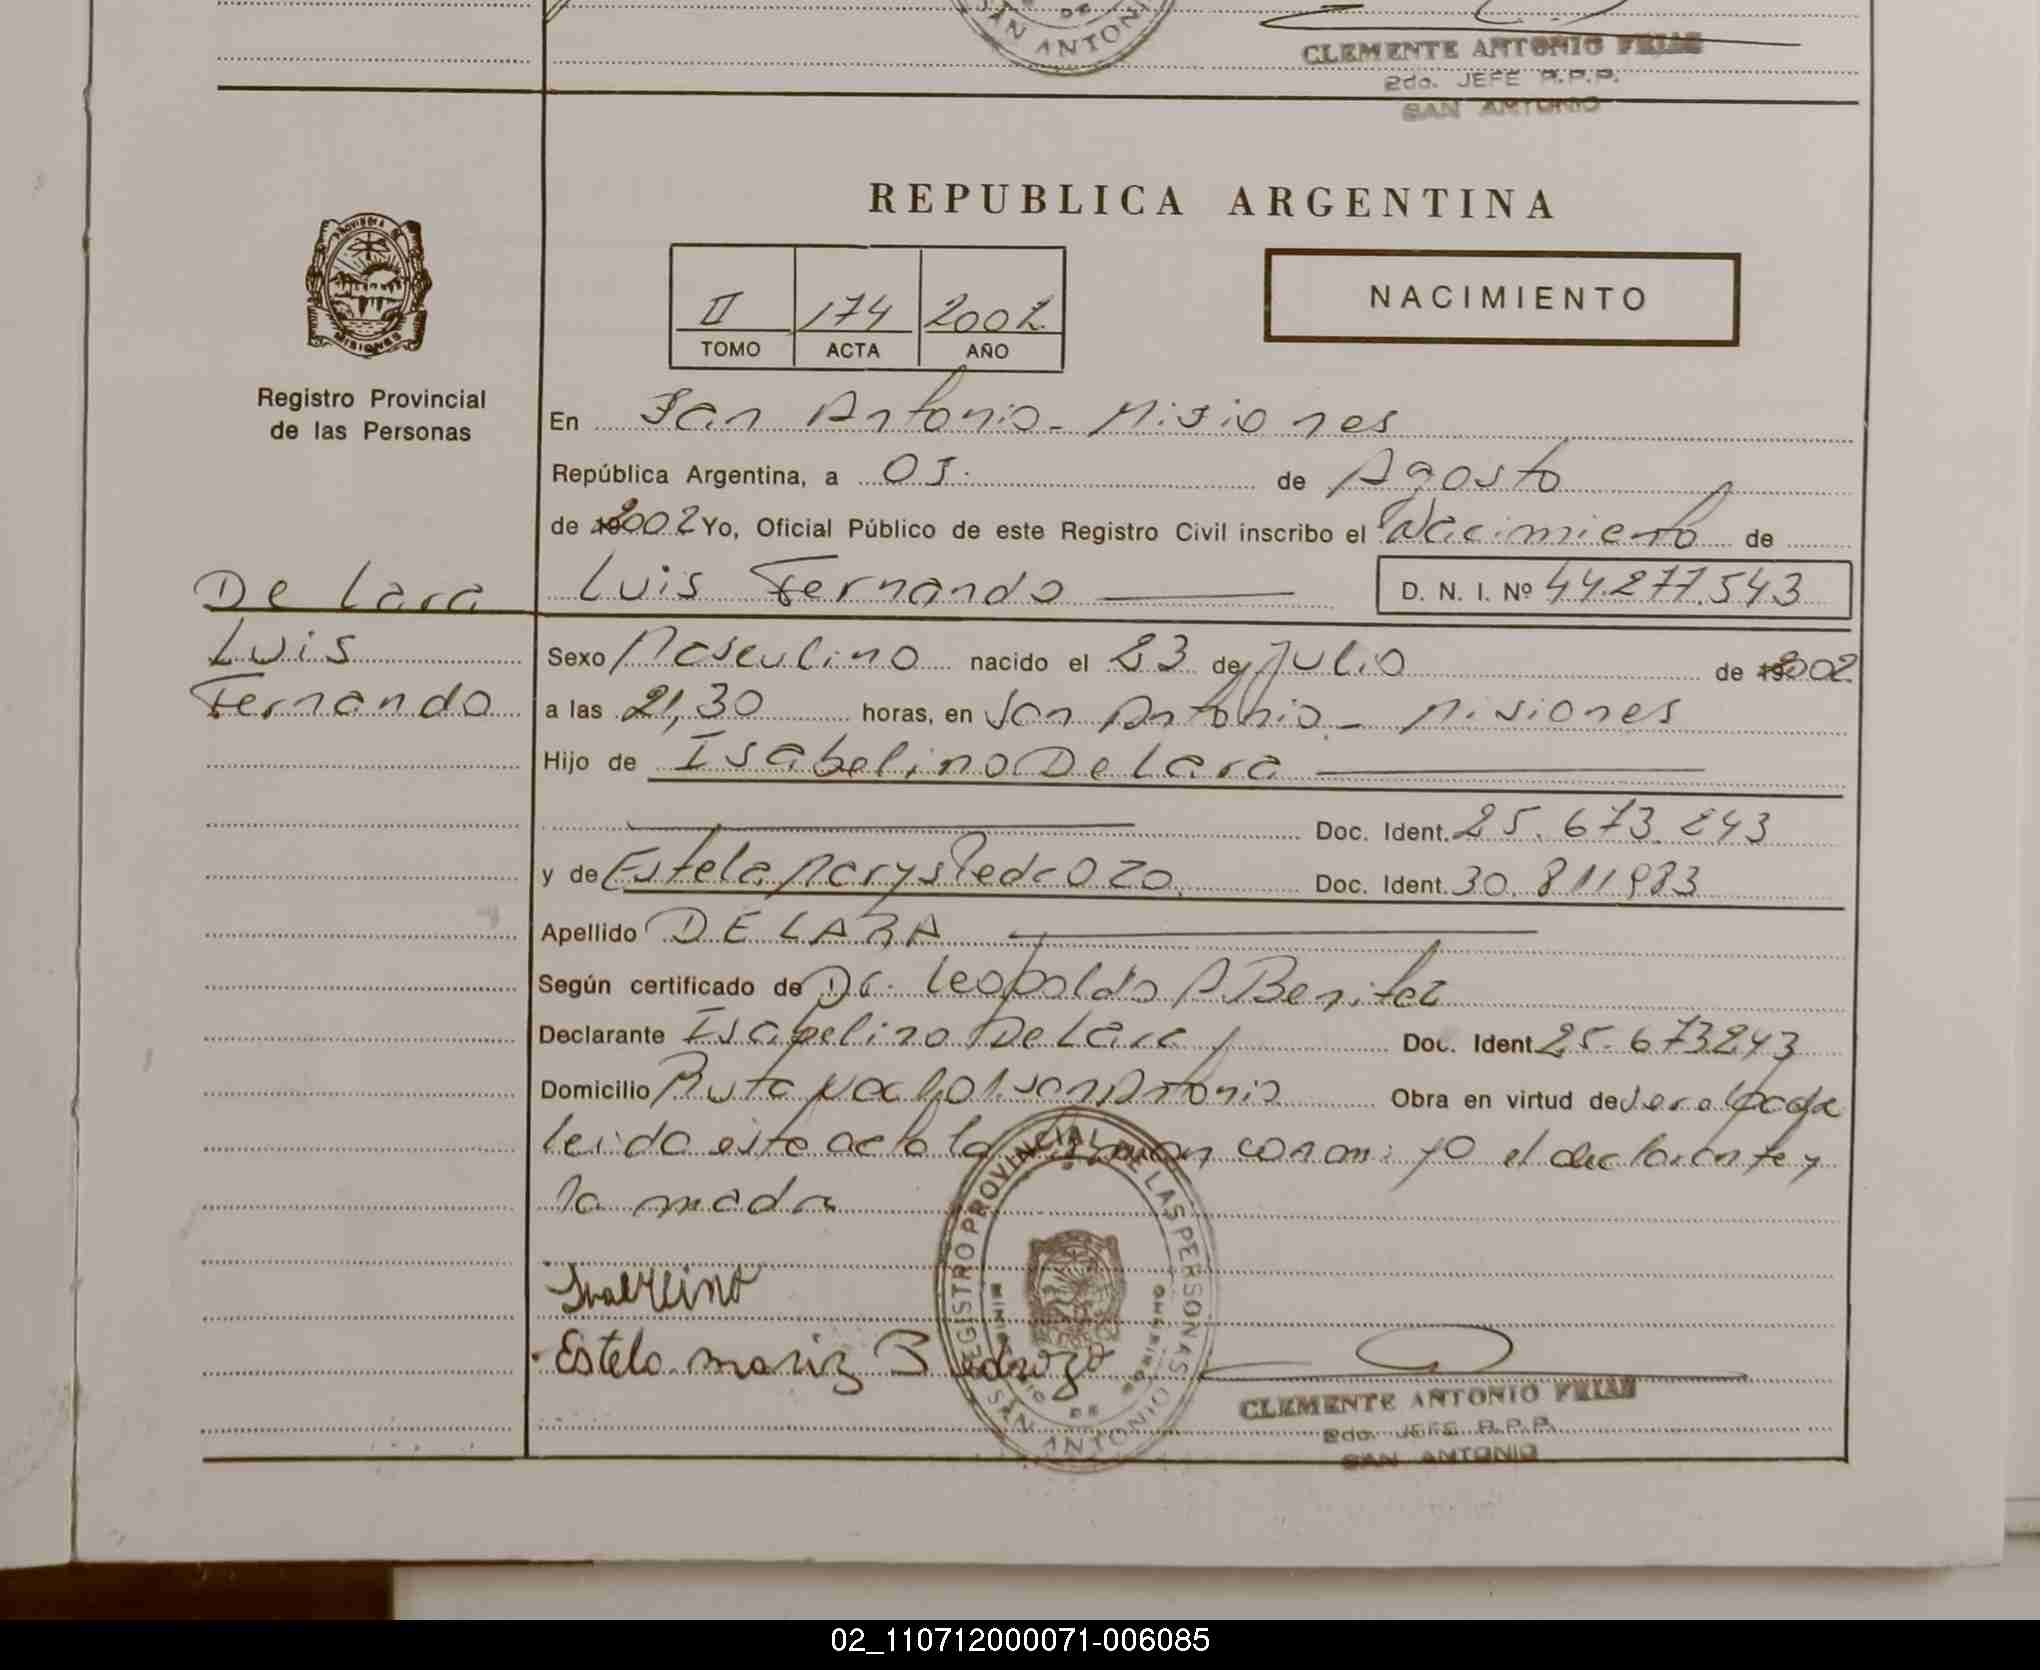 SAN ANTONIO
CLEMENTE ANTONIO FRIAS
2do. JEFE R.P.P.
SAN ANTONIO
REPUBLICA ARGENTINA
PROVINCIA DE
MISIONES
II 174 2002
TOMO ACTA AÑO
NACIMIENTO
Registro Provincial
de las Personas
En San Antonio - Misiones
República Argentina, a 05. de Agosto
de 2002 Yo, Oficial Público de este Registro Civil inscribo el Nacimiento de
De Lara
Luis Fernando D. N. I. Nº 44.277.543
Luis
Fernando
Sexo Masculino nacido el 23 de Julio de 2002
a las 21,30 horas, en San Antonio - Misiones
Hijo de Isabelino De Lara
Doc. Ident. 25.673.243
y de Estela Marys Pedrozo Doc. Ident. 30.811983
Apellido DE LARA
Según certificado de Dr. Leopoldo A Benitez
Declarante Isabelino De Lara Doc. Ident 25.673243
Domicilio Ruta San Antonio Obra en virtud de
leido este acta la firman conmigo el declarante y
la madre
Isabelino
Estela mariz Pedrozo
REGISTRO PROVINCIAL DE LAS PERSONAS
MINISTERIO DE GOBIERNO
SAN ANTONIO
CLEMENTE ANTONIO FRIAS
2do. JEFE R.P.P.
SAN ANTONIO
02_110712000071-006085